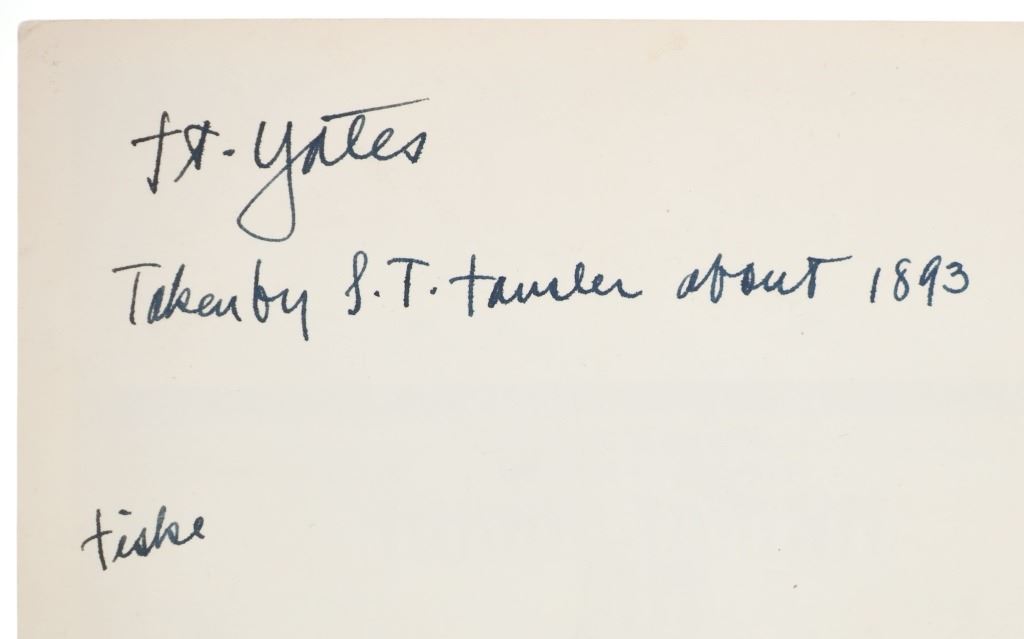 Ft. Yates
Taken by S. T. Fansler about 1893
Fiske